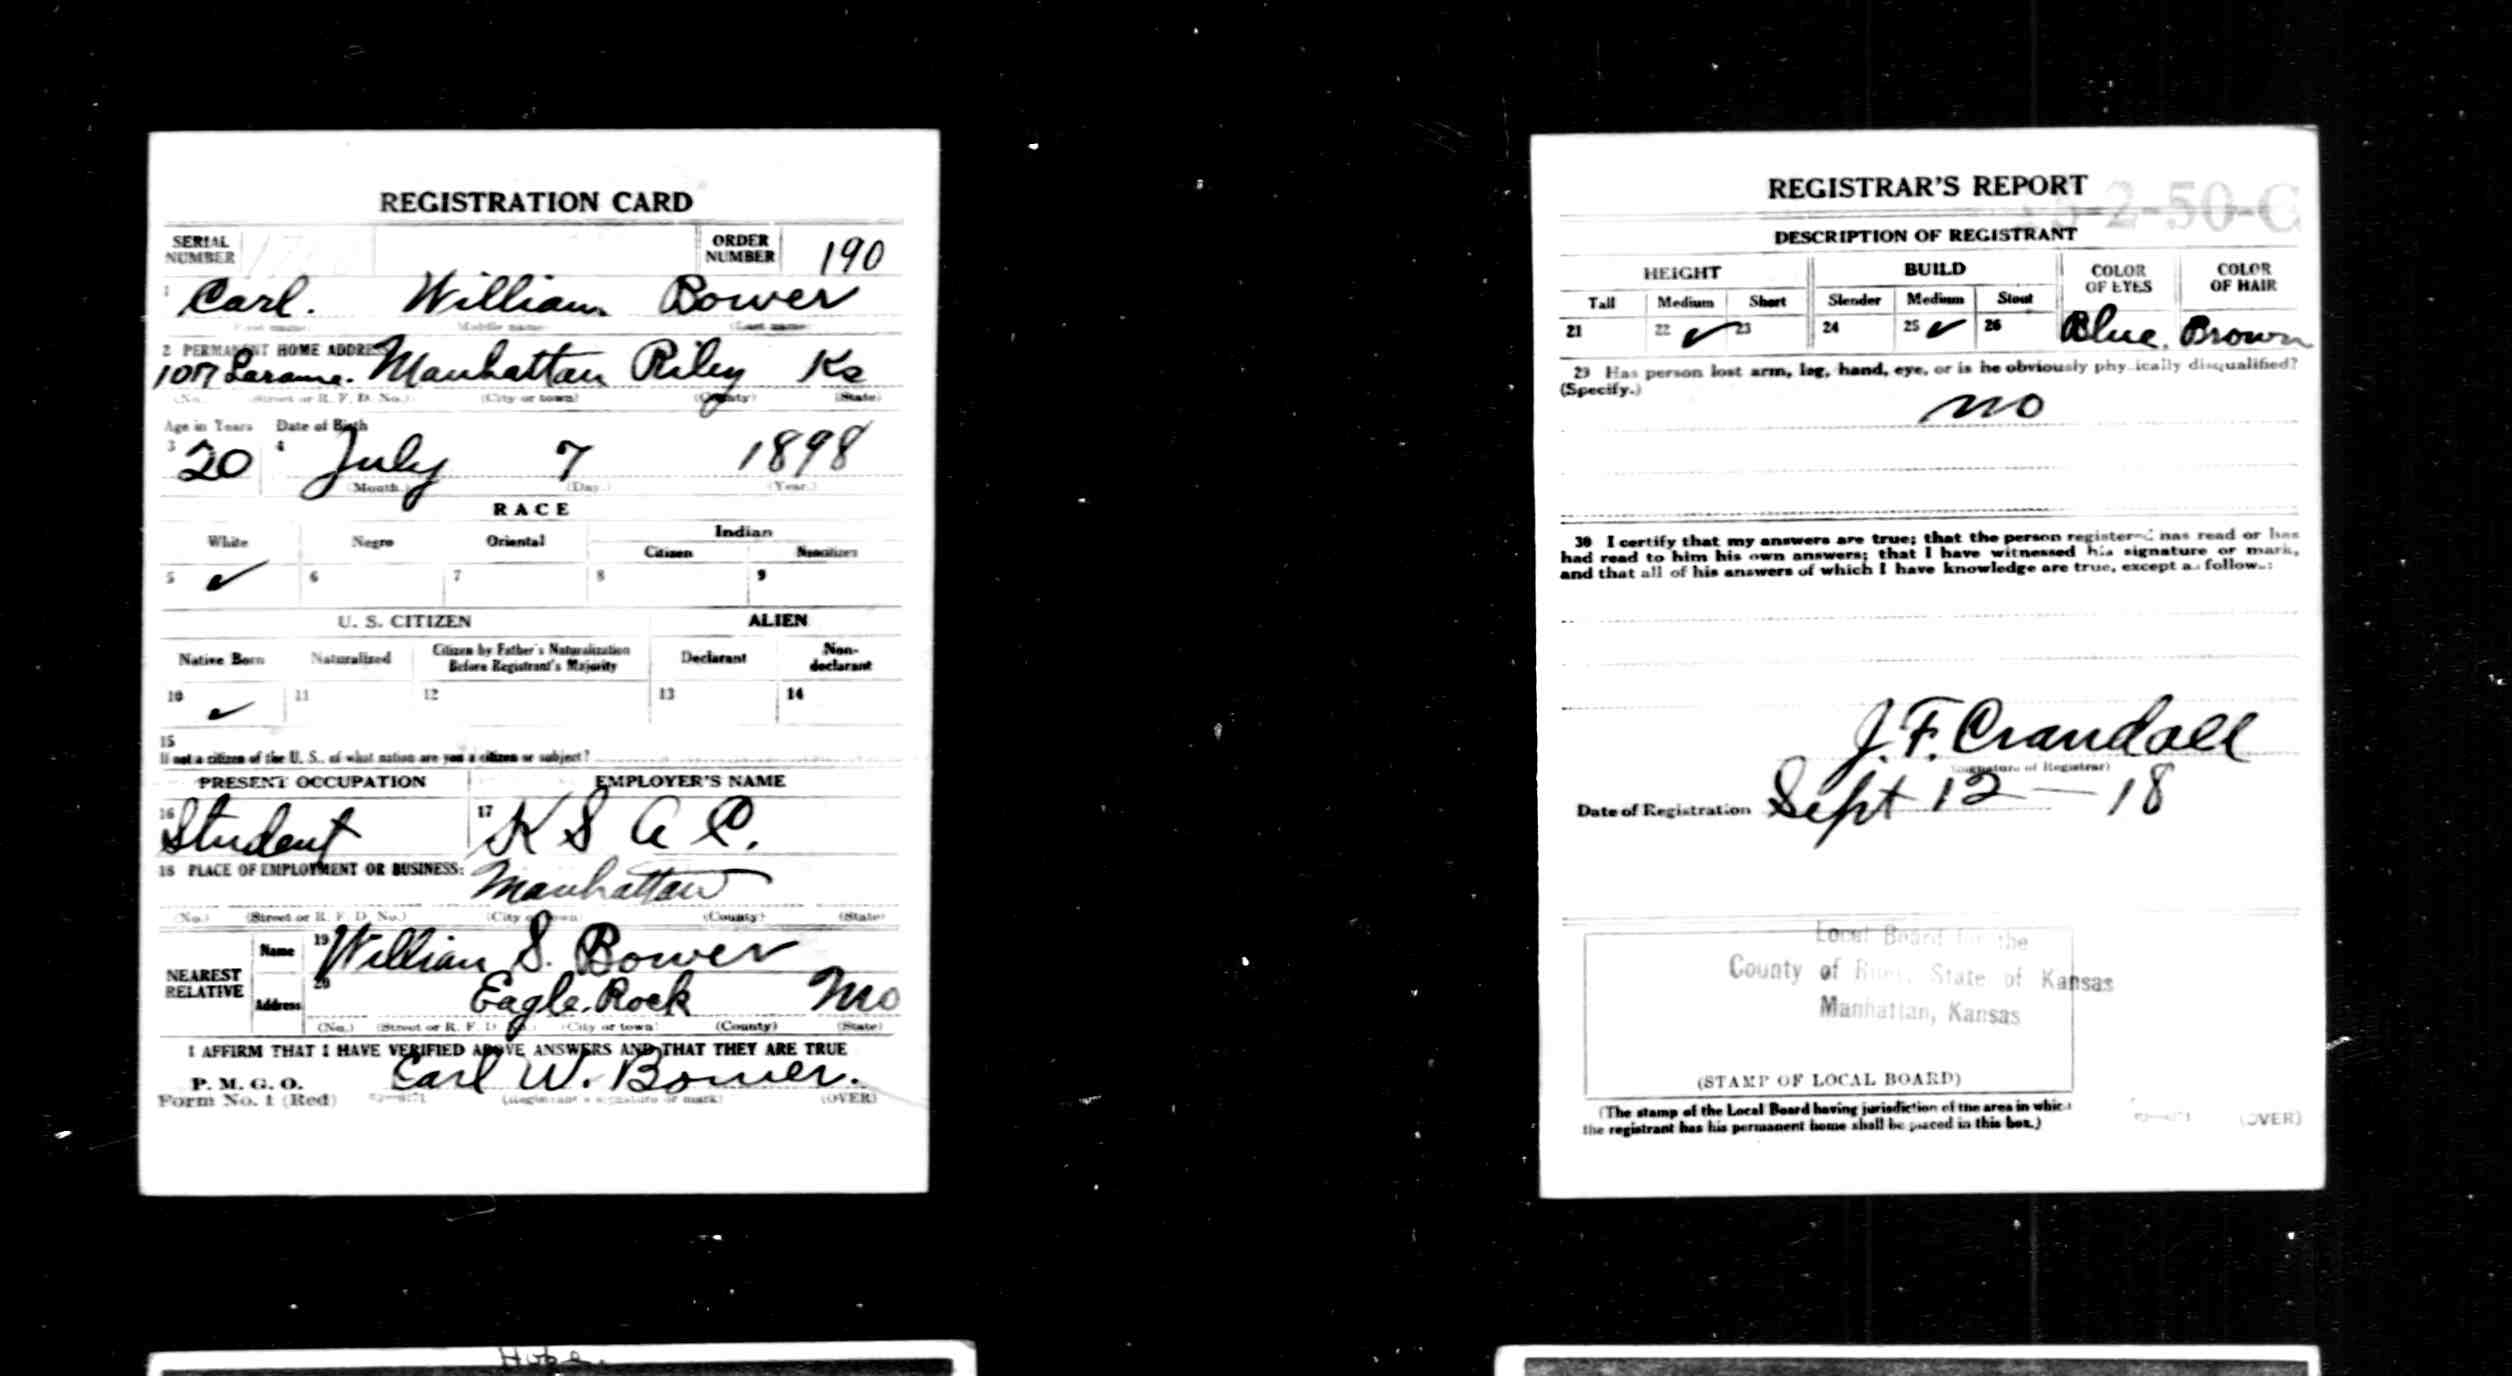 REGISTRATION CARD
SERIAL NUMBER
ORDER NUMBER 190
1 Carl. William Bower
(First name) (Middle name) (Last name)
2 PERMANENT HOME ADDRESS
1017 Larame. Manhattan Riley Ks
(No.) (Street or R. F. D. No.) (City or town) (County) (State)
Age in Years Date of Birth
3 20 4 July 7 1898
(Month.) (Day.) (Year.)
RACE
White Negro Oriental Indian
Citizen Noncitizen
5 ✓ 6 7 8 9
U. S. CITIZEN ALIEN
Native Born Naturalized Citizen by Father's Naturalization Before Registrant's Majority Declarant Non-declarant
10 ✓ 11 12 13 14
15
If not a citizen of the U. S., of what nation are you a citizen or subject?
PRESENT OCCUPATION EMPLOYER'S NAME
16 Student 17 K S A C.
18 PLACE OF EMPLOYMENT OR BUSINESS: Manhattan
(No.) (Street or R. F. D. No.) (City or town) (County) (State)
NEAREST RELATIVE
Name 19 William S. Bower
Address 20 Eagle Rock Mo
(No.) (Street or R. F. D. No.) (City or town) (County) (State)
I AFFIRM THAT I HAVE VERIFIED ABOVE ANSWERS AND THAT THEY ARE TRUE
P. M. G. O.
Form No. 1 (Red) Carl W. Bower.
(Registrant's signature or mark) (OVER)
REGISTRAR'S REPORT
5-2-50-C
DESCRIPTION OF REGISTRANT
HEIGHT BUILD COLOR OF EYES COLOR OF HAIR
Tall Medium Short Slender Medium Stout
21 22 ✓ 23 24 25 ✓ 26 Blue. Brown
29 Has person lost arm, leg, hand, eye, or is he obviously physically disqualified?
(Specify.)
no
30 I certify that my answers are true; that the person registered has read or has
had read to him his own answers; that I have witnessed his signature or mark,
and that all of his answers of which I have knowledge are true, except as follows:
J. F. Crandall
(Signature of Registrar)
Date of Registration Sept 12 — 18
Local Board for the
County of Riley, State of Kansas
Manhattan, Kansas
(STAMP OF LOCAL BOARD)
(The stamp of the Local Board having jurisdiction of the area in which
the registrant has his permanent home shall be placed in this box.)
(OVER)